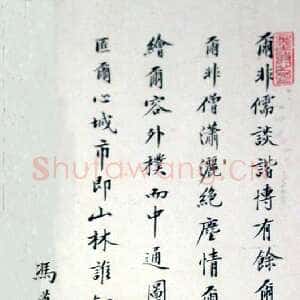 爾非儒談諧博有餘爾
爾非僧瀟灑絶塵情爾
繪爾容外樸而中通圖
匡爾心城市即山林誰
馮
Shufawang.cn